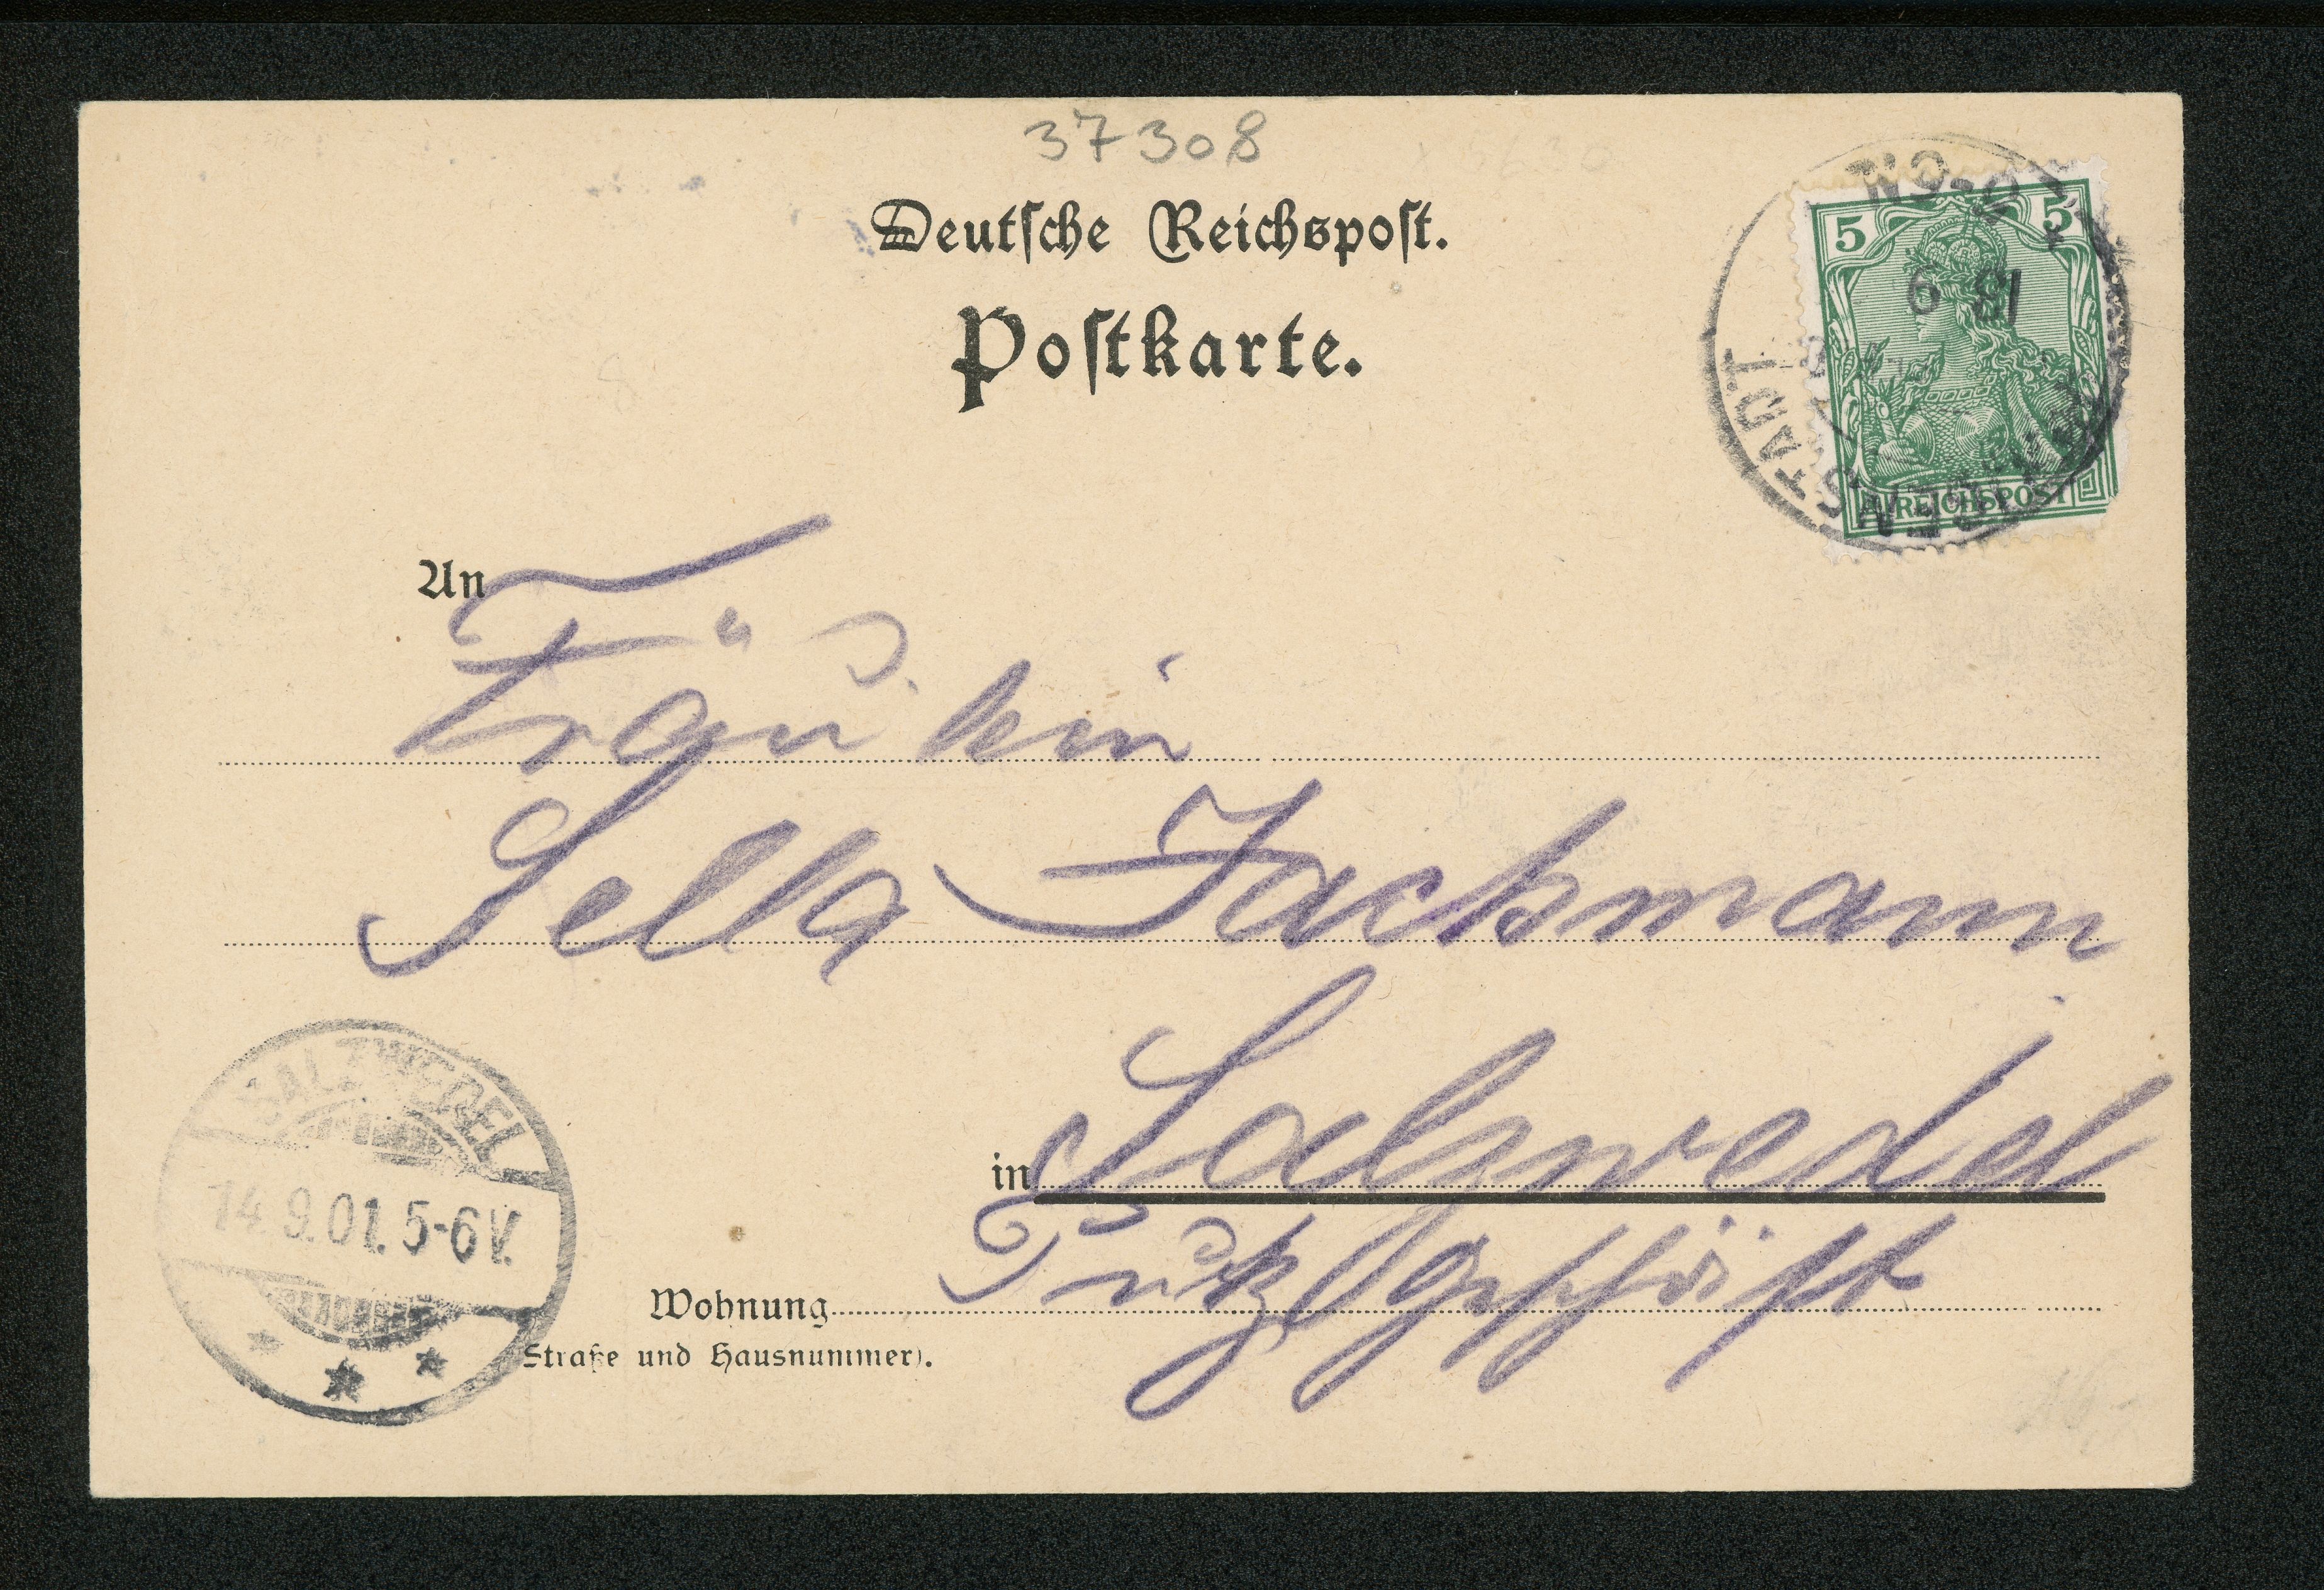 37308
Deutsche Reichspost.
Postkarte.
5 5
REICHSPOST
13 9
STADT
An
Fräulein
Sella Jackmann
in Salzwedel
Putzgeschäft
Wohnung
Straße und Hausnummer).
SALZWEDEL
14.9.01. 5-6 V.